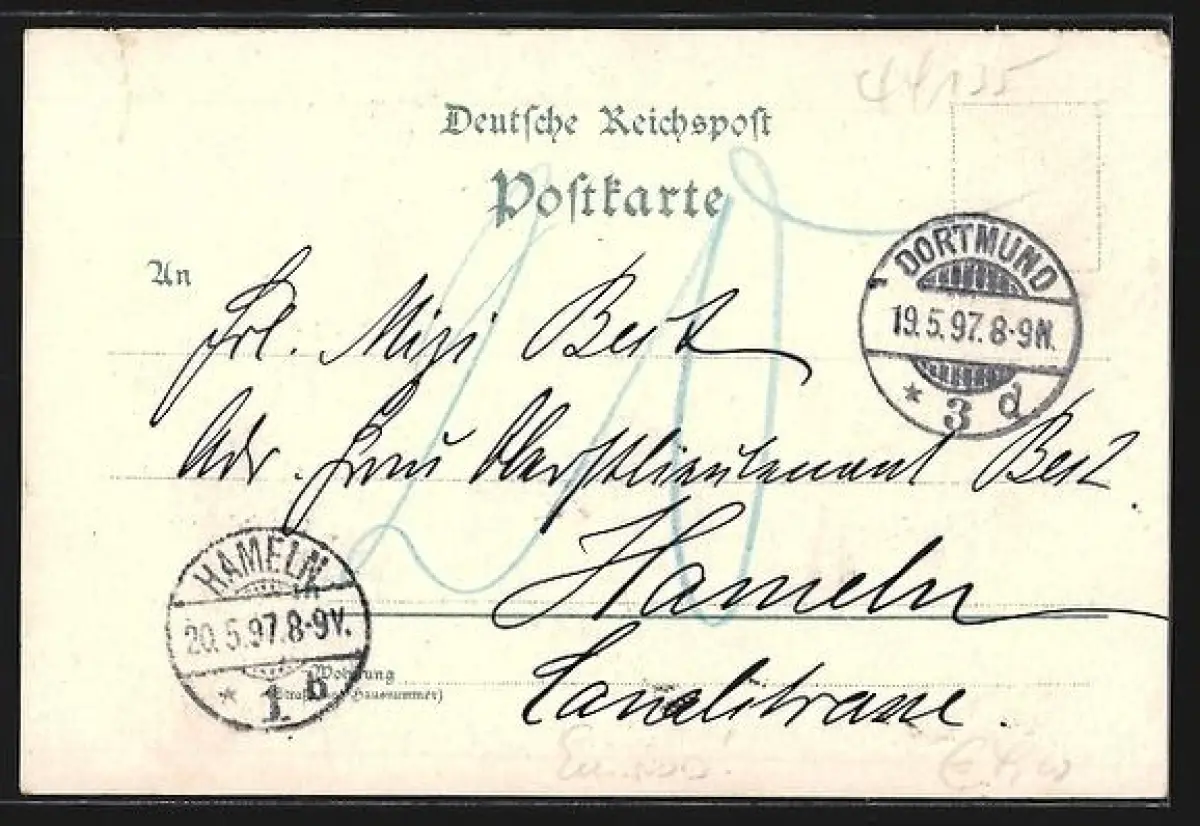 44/135
Deutsche Reichspost
Postkarte
An
Frl. Mizi Best
Adr. Frau Oberstlieutenant Best.
Hameln
Canalstrasse.
Wohnung
(Straße und Hausnummer)
DORTMUND
19.5.97.8-9N.
* 3 d
HAMELN
20.5.97.8-9V.
* 1 b
20